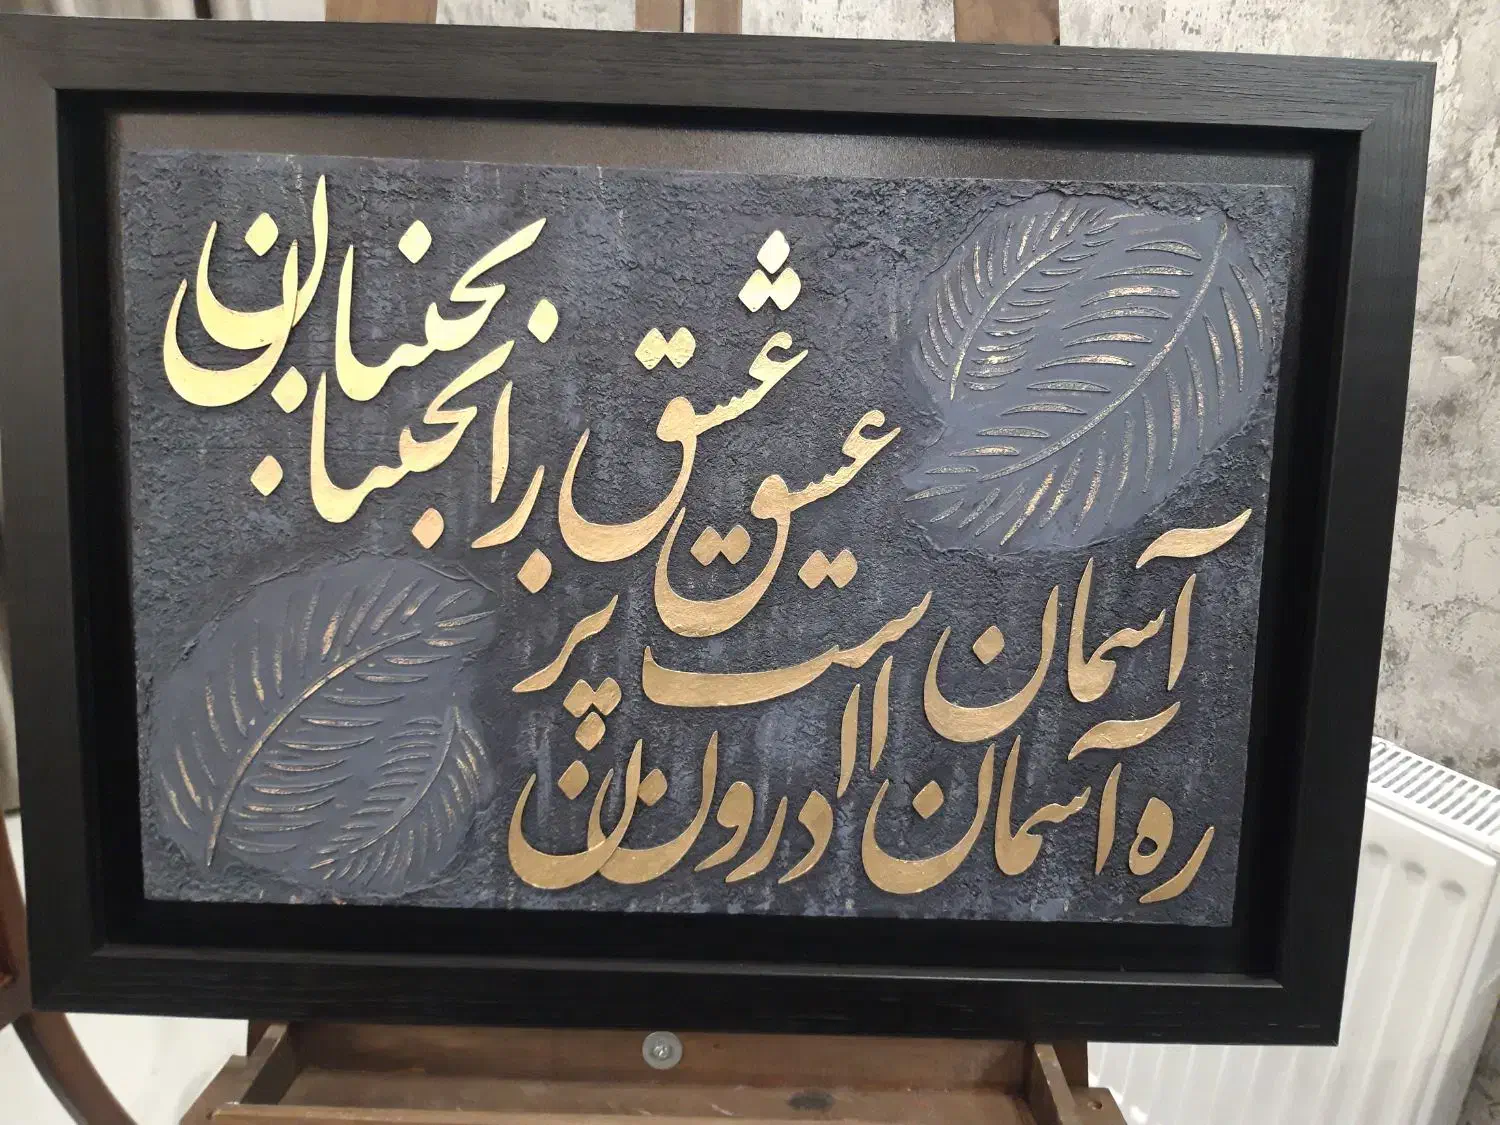 ره آسمان آسمان درون است پر عشق عشق را بجنبان بجنبان